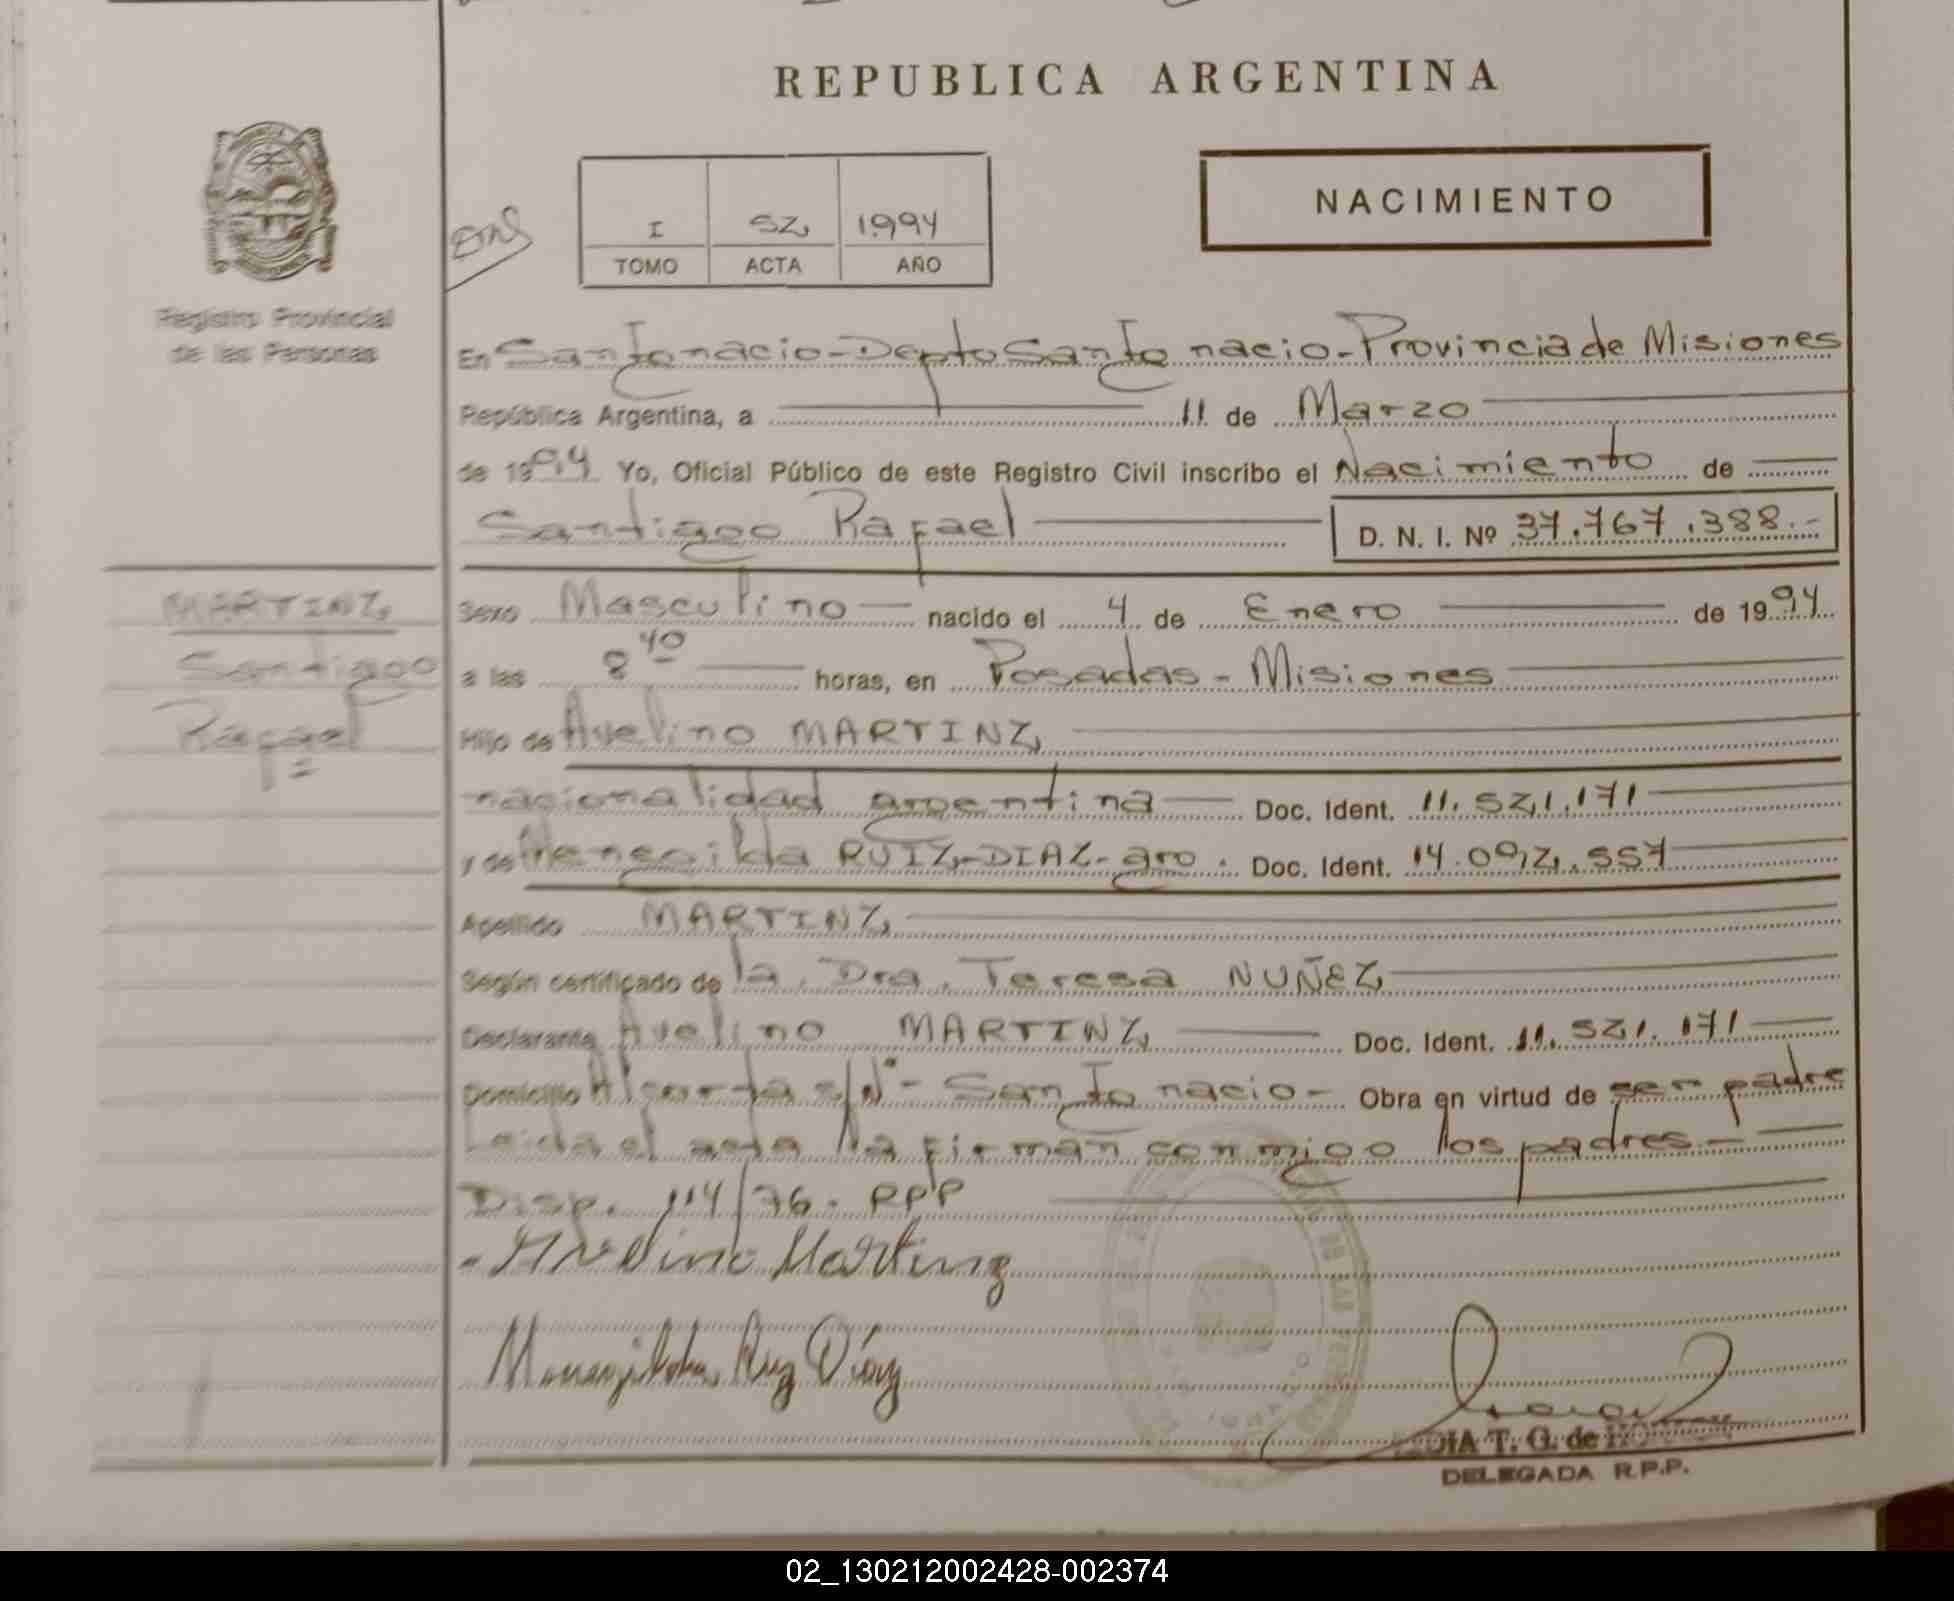 REPUBLICA ARGENTINA
NACIMIENTO
I 52 1994
TOMO ACTA AÑO
Registro Provincial
de las Personas
En San Ignacio - Depto San Ignacio - Provincia de Misiones
República Argentina, a 11 de Marzo
de 1994 Yo, Oficial Público de este Registro Civil inscribo el Nacimiento de
Santiago Rafael D. N. I. Nº 37.767.388.-
MARTINZ
Santiago
Rafael
Sexo Masculino nacido el 4 de Enero de 1994
a las 8 40 horas, en Posadas - Misiones
Hijo de Avelino MARTINZ
nacionalidad argentina Doc. Ident. 11.521.171
y de Menegilda RUIZ-DIAZ- arg. Doc. Ident. 14.092.557
Apellido MARTINZ
Según certificado de la Dra. Teresa NUÑEZ
Declarante Avelino MARTINZ Doc. Ident. 11.521.171
Domicilio s/Nº - San Ignacio - Obra en virtud de ser padre
Leida el acta la firman conmigo los padres.-
Disp. 114/76. RPP
Avelino Martinz
Menegilda Ruiz Díaz
T. G. de
DELEGADA R.P.P.
02_130212002428-002374